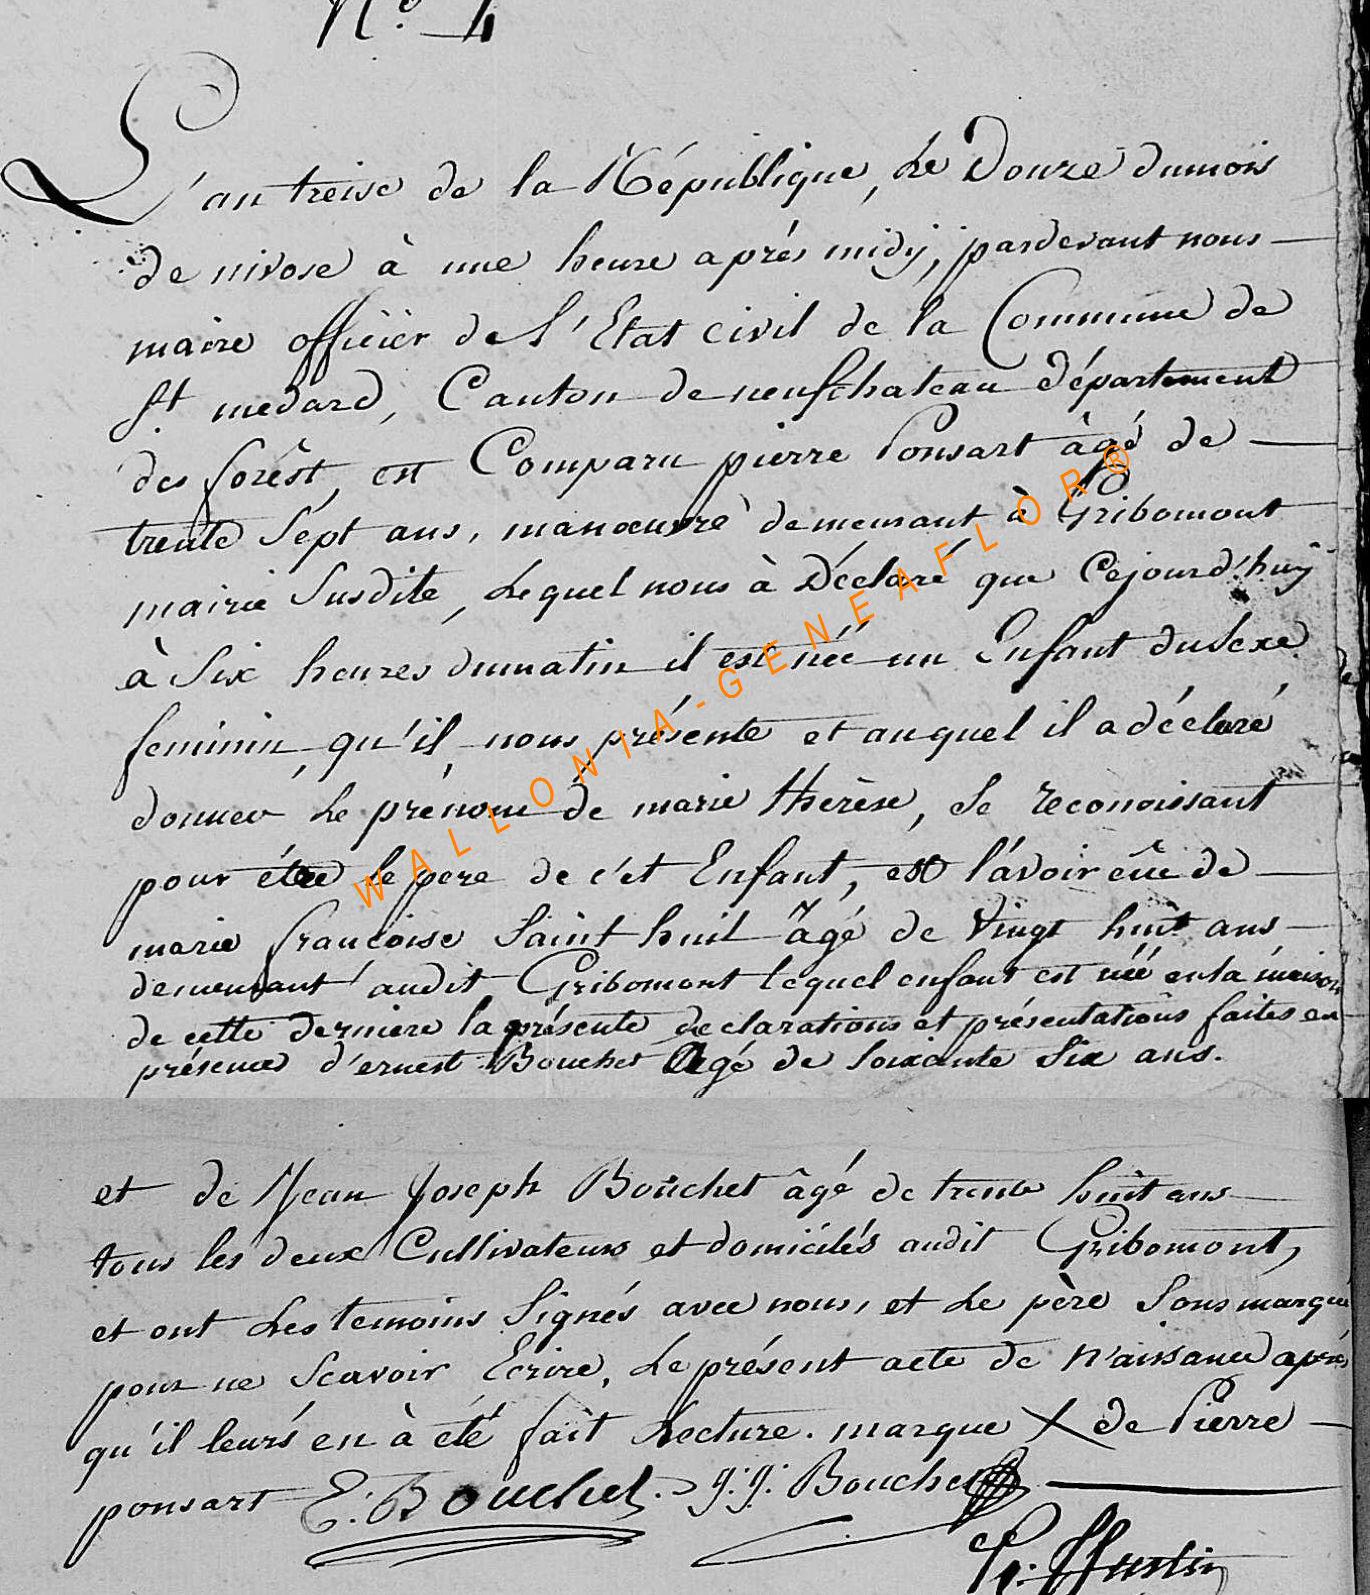 N.° 4
L'an treise de la République, Le Douze dumois
de nivose à une heure aprés midÿ, pardevant nous
maire officiër de L'Etat civil de la Commune de
St medard, Canton de neufchateau département
des forêst, est Comparu pierre Ponsart âgé de
trente Sépt ans, manœuvre demeurant à Gribomont
mairie Susdite, Lequel nous à Déclaré que Cejourd'huÿ
à Six heures dumatin il est née un Enfant duSexe
feminin, qu'il nous présente et auquel il a déclaré
donner Le prénom de marie thérèse, Se reconoissant
pour être le pere de c'et Enfant, est l'avoir eüe de
marie françoise Saint huil Âgé de vingt huit ans
demeurant audit Gribomont lequel enfant est néé en la maison
de cette derniere la présente declarations et présentations faites en
présence d'ernest Bouchet Agé de Soixante Six ans.
et de Jean Joseph Bouchet âgé de trente huit ans
tous les deux Cultivateurs et domiciliés audit Gribomont,
et ont Les temoins Signés avec nous, et Le père Sousmarqué
pour ne Scavoir Ecrire, Le présent acte de Naissance aprés
qu'il leurs en à été fait Lecture. marque X de Pierre
ponsart E. Bouchet. j. j. Bouchet
WALLONIA-GENEAFLOR®